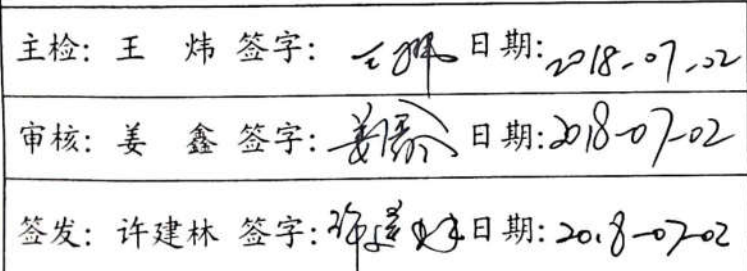 主检: 王 炜 签字: 王炜 日期: 2018-07-02
审核: 姜 鑫 签字: 姜鑫 日期: 2018-07-02
签发: 许建林 签字: 许建林 日期: 2018-07-02